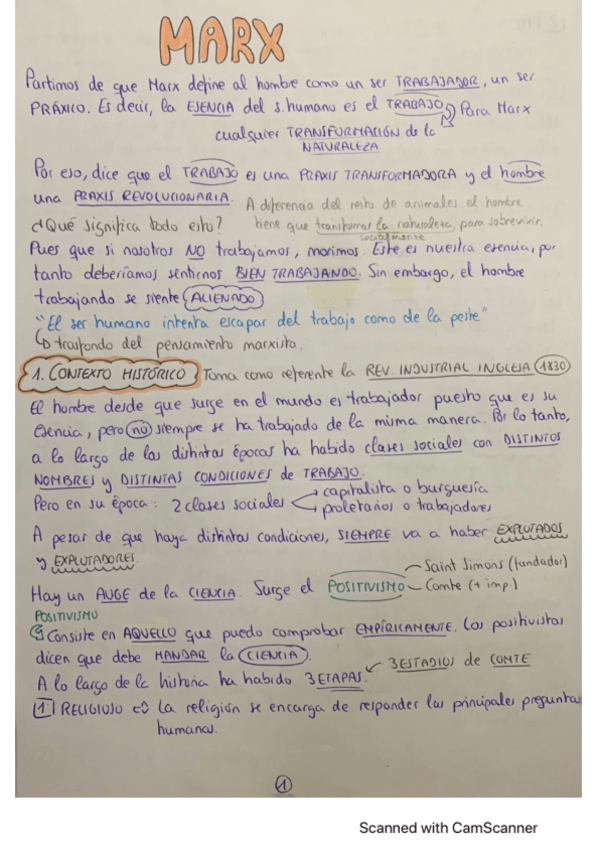 MARX
Partimos de que Marx define al hombre como un ser TRABAJADOR, un ser
PRÁXICO. Es decir, la ESENCIA del s. humano es el TRABAJO Para Marx
cualquier TRANSFORMACIÓN de la
NATURALEZA
Por eso, dice que el TRABAJO es una PRAXIS TRANSFORMADORA y el hombre
una PRAXIS REVOLUCIONARIA. A diferencia del resto de animales el hombre
¿Qué significa todo esto? tiene que transformar la naturaleza, para sobrevivir.
socialmente
Pues que si nosotros NO trabajamos, morimos. Este es nuestra esencia, por
tanto deberíamos sentirnos BIEN TRABAJANDO. Sin embargo, el hombre
trabajando se siente ALIENADO
"El ser humano intenta escapar del trabajo como de la peste"
↳ trasfondo del pensamiento marxista.
1. CONTEXTO HISTÓRICO Toma como referente la REV. INDUSTRIAL INGLESA (1830)
El hombre desde que surge en el mundo es trabajador puesto que es su
esencia, pero no siempre se ha trabajado de la misma manera. Por lo tanto,
a lo largo de las distintas épocas ha habido clases sociales con DISTINTOS
NOMBRES y DISTINTAS CONDICIONES de TRABAJO.
Pero en su época: 2 clases sociales → capitalista o burguesía
→ proletarios o trabajadores
A pesar de que haya distintas condiciones, SIEMPRE va a haber EXPLOTADOS
y EXPLOTADORES.
Saint Simons (fundador)
Hay un AUGE de la CIENCIA. Surge el POSITIVISMO Comte (+ imp.)
POSITIVISMO
↳ Consiste en AQUELLO que puedo comprobar EMPÍRICAMENTE. Los positivistas
dicen que debe MANDAR la CIENCIA.
A lo largo de la historia ha habido 3 ETAPAS. ← 3 ESTADIOS de COMTE
1 RELIGIOSO ⇨ La religión se encarga de responder las principales preguntas
humanas.
1
Scanned with CamScanner